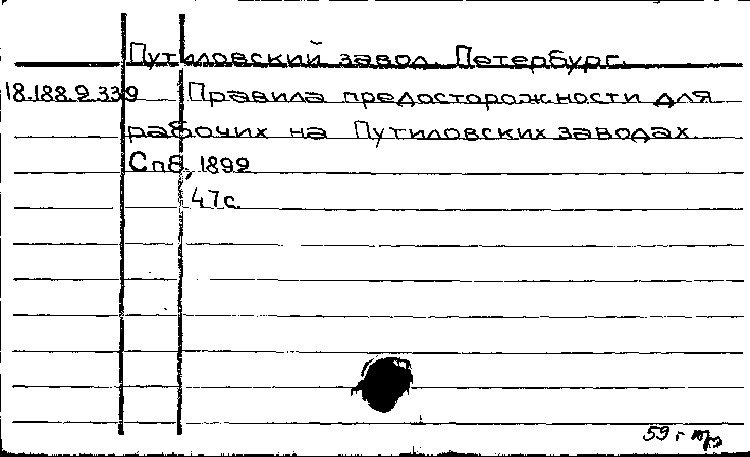 Путиловский завод. Петербург.
18.188.9.339 Правила предосторожности для
рабочих на Путиловских заводах.
Спб, 1899
47 с.
59 г.